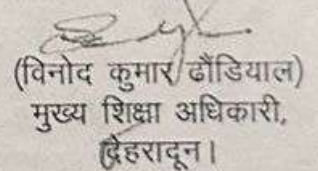 (विनोद कुमार ढौंडियाल)
मुख्य शिक्षा अधिकारी,
देहरादून।